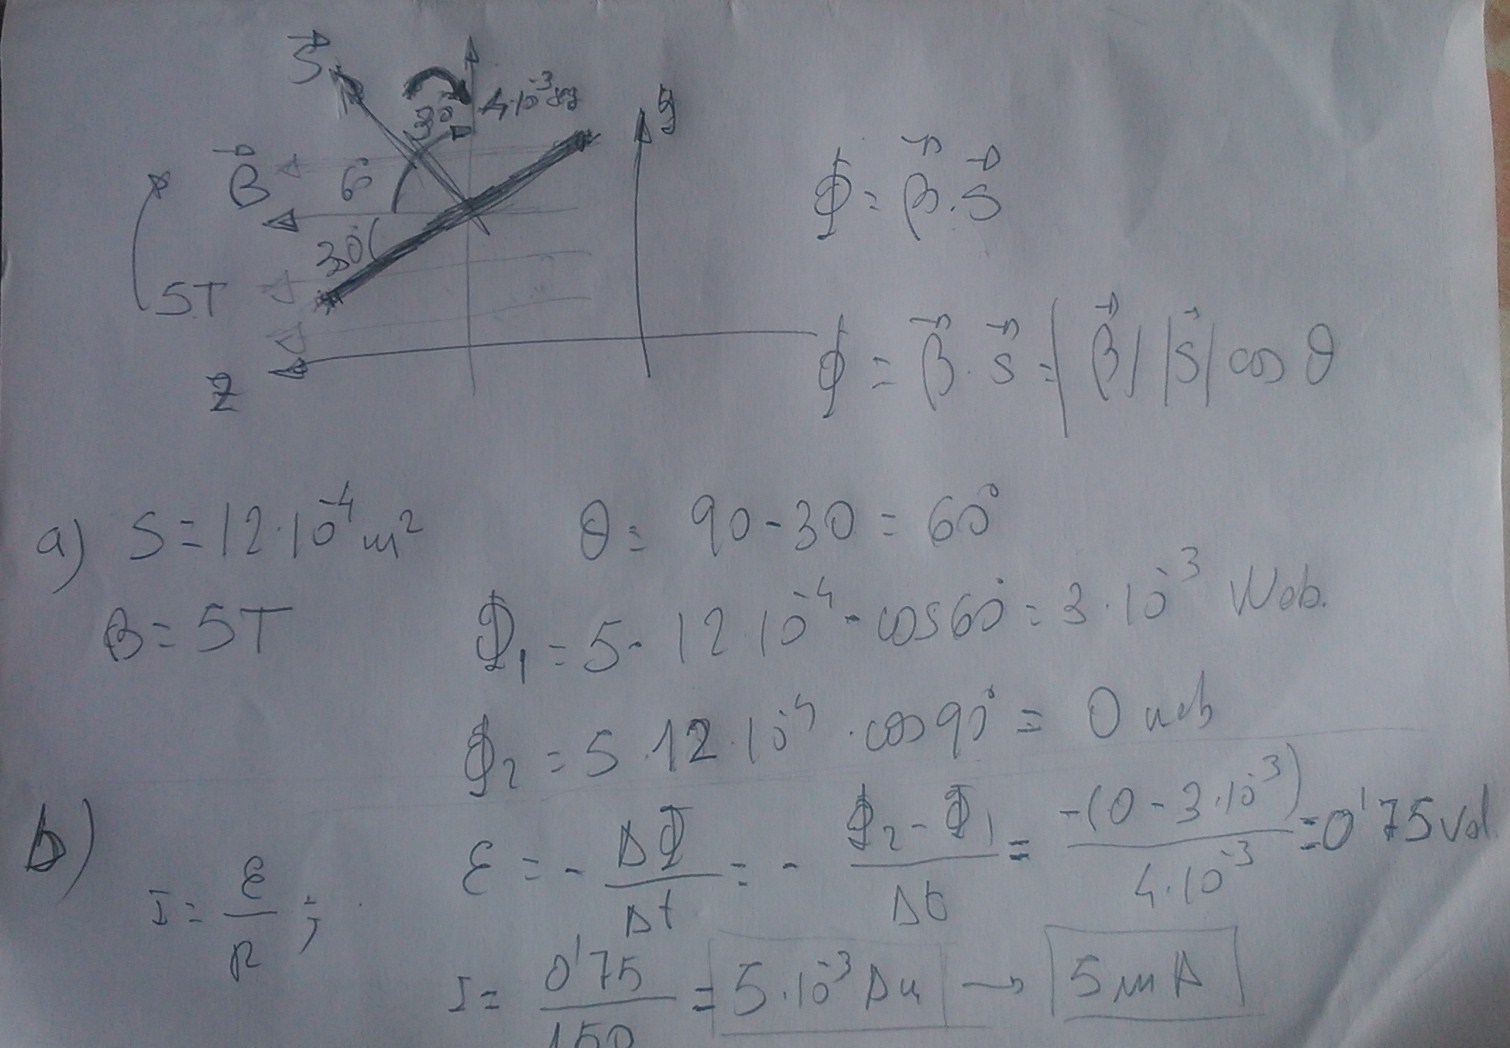 S⃗
30° 4·10⁻³ sg
y
B⃗ 60°
30°
5T
Z
Φ = B⃗·S⃗
Φ = B⃗·S⃗ = |B⃗| |S⃗| cos θ
a) S = 12·10⁻⁴ m² θ = 90-30 = 60°
B = 5T Φ₁ = 5·12·10⁻⁴·cos60° = 3·10⁻³ Web.
Φ₂ = 5·12·10⁻⁴·cos90° = 0 web
b) I = ε/R ; ε = - ΔΦ/Δt = - (Φ₂-Φ₁)/Δt = -(0-3·10⁻³)/4·10⁻³ = 0'75 Vol
I = 0'75/150 = 5·10⁻³ Am → 5 mA